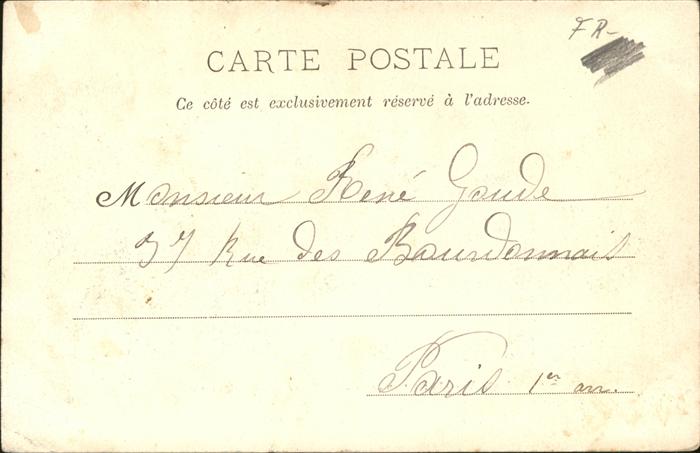 FR-
CARTE POSTALE
Ce côté est exclusivement réservé à l'adresse.
Monsieur René Goude
37 Rue des Bourdonnais
Paris 1er arr.